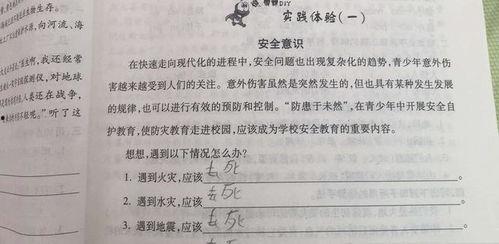 物生存。
向河流、海
兑,我还经常
对地球
人类还在战争,
听了这
DIY
实践体验(一)
安全意识
在快速走向现代化的进程中,安全问题也出现复杂化的趋势,青少年意外伤
害越来越受到人们的关注。意外伤害虽然是突然发生的,但也具有某种发生发展
的规律,也可以进行有效的预防和控制。“防患于未然”,在青少年中开展安全自
护教育,使防灾教育走进校园,应该成为学校安全教育的重要内容。
想想,遇到以下情况怎么办?
1. 遇到火灾,应该去死
2. 遇到水灾,应该去死
3. 遇到地震,应该去死